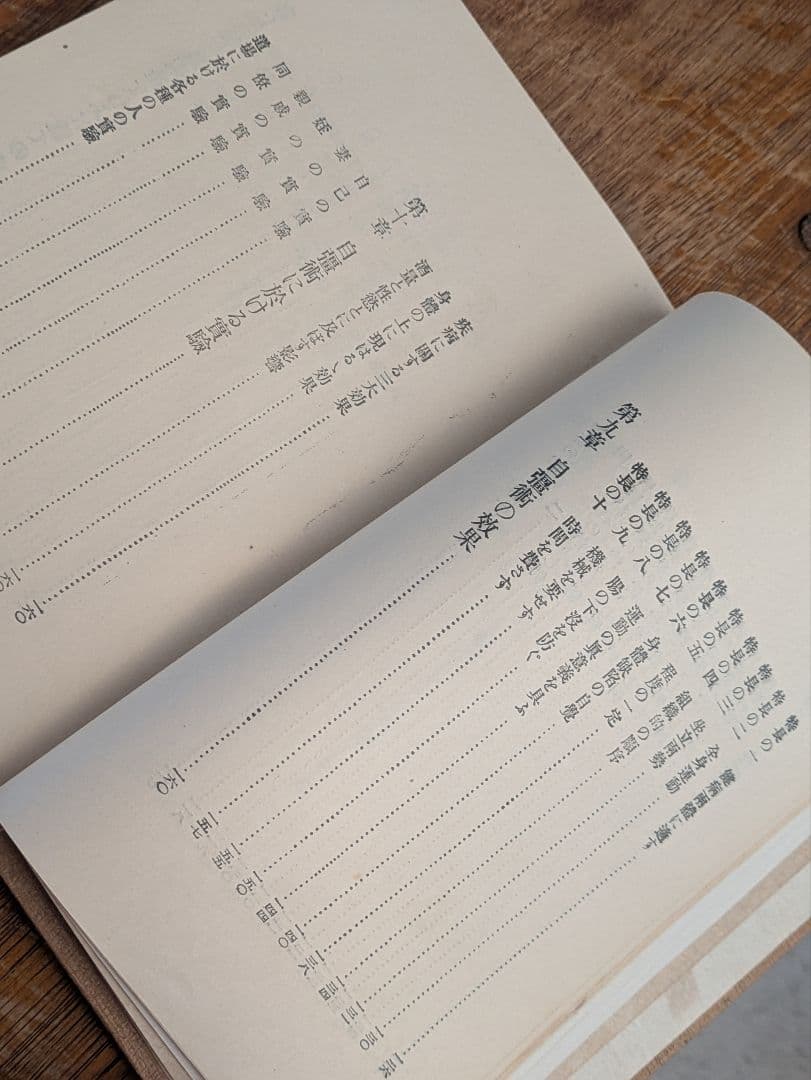 特長の一 健病兩體に適す 一二六
特長の二 全身運動 一三〇
特長の三 坐立兩勢 一三一
特長の四 組織的の順序 一三四
特長の五 程度の一定 一三八
特長の六 身體缺陷の自覺 一四〇
特長の七 運動の眞意義を具ふ 一四四
特長の八 腸の下沒を防ぐ 一五〇
特長の九 機械を要せず 一五五
特長の十 時間を費さず 一五七
第九章 自彊術の效果 一六〇
疾病に關する三大効果 一六〇
身體の上に現はるゝ効果
酒量と性慾とに及ぼす影響
第十章 自彊術に於ける實驗
自己の實驗
妻の實驗
の實驗
親戚の實驗
同僚の實驗
道場に於ける各種の人の實驗